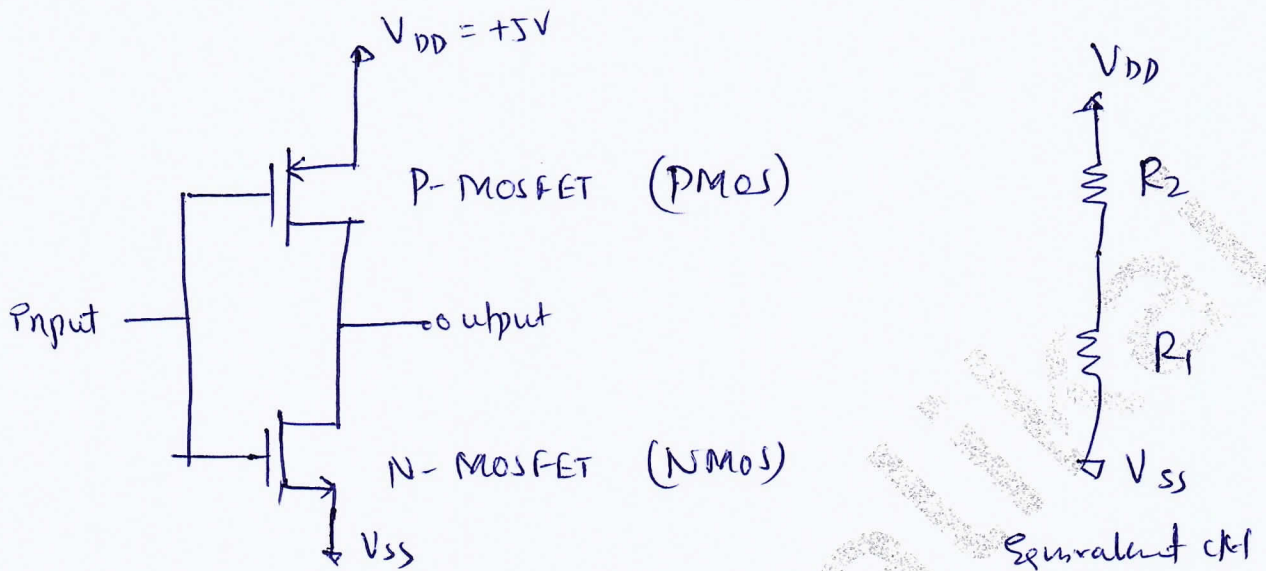 V_DD = +5V
P-MOSFET (PMOS)
Input
output
N-MOSFET (NMOS)
V_SS
V_DD
R_2
R_1
V_SS
Equivalent ckt